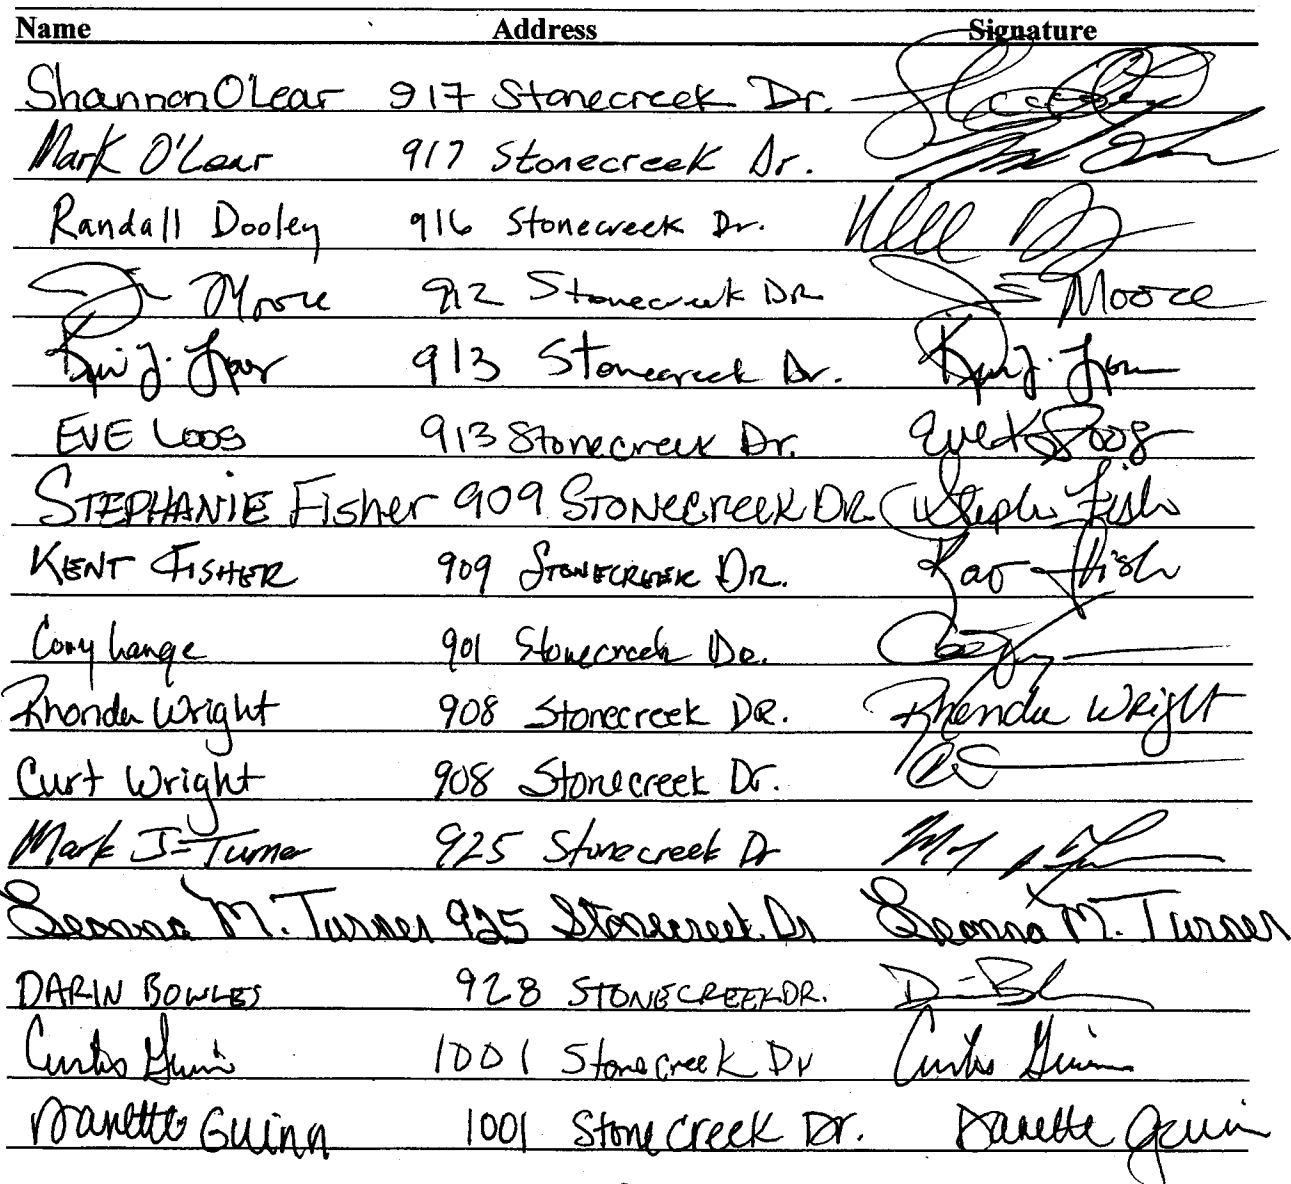 Name Address Signature
Shannon O'Lear 917 Stonecreek Dr.
Mark O'Lear 917 Stonecreek Dr.
Randall Dooley 916 Stonecreek Dr.
Moore 912 Stonecreek DR Moore
J. 913 Stonecreek Dr. J.
EVE LOOS 913 Stonecreek Dr. Eve K Loos
STEPHANIE Fisher 909 STONECREEK DR. Steph Fish
KENT FISHER 909 STONECREEK DR.
Cory Lange 901 Stonecreek DR.
Rhonda Wright 908 Stonecreek DR. Rhonda Wright
Curt Wright 908 Stonecreek Dr.
Mark J Turner 925 Stonecreek Dr
Leanna M. Turner 925 Stonecreek Dr Leanna M. Turner
DARIN BOWLES 928 STONECREEK DR.
Curtis Guinn 1001 Stonecreek Dr Curtis Guinn
Danette Guinn 1001 Stonecreek Dr. Danette Guinn